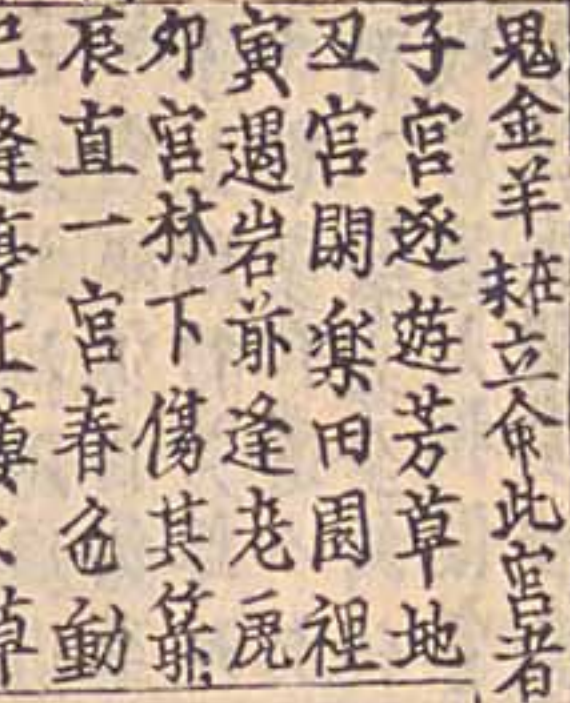 鬼金羊在未立命此宮者
子宮逐遊芳草地
丑宮閑楽田園裡
寅遇岩前逢老虎
卯宮林下傷其箭
辰直一宮春色動